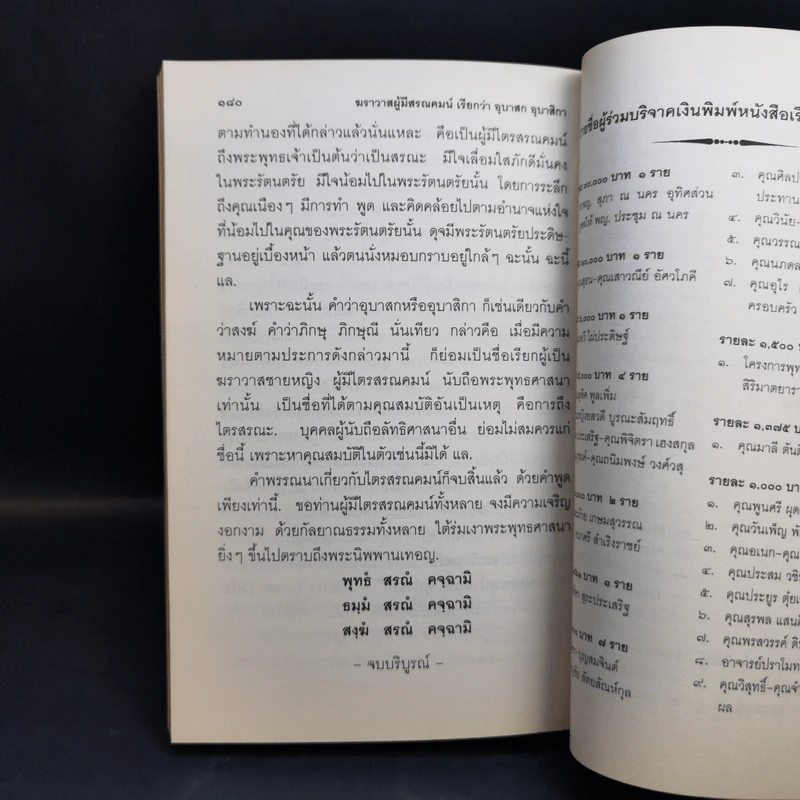 ๑๘๐
ฆราวาสผู้มีสรณคมน์ เรียกว่า อุบาสก อุบาสิกา
ตามทำนองที่ได้กล่าวแล้วนั่นแหละ คือเป็นผู้มีไตรสรณคมน์
ถึงพระพุทธเจ้าเป็นต้นว่าเป็นสรณะ มีใจเลื่อมใสภักดีมั่นคง
ในพระรัตนตรัย มีใจน้อมไปในพระรัตนตรัยนั้น โดยการระลึก
ถึงคุณเนืองๆ มีการทำ พูด และคิดคล้อยไปตามอำนาจแห่งใจ
ที่น้อมไปในคุณของพระรัตนตรัยนั้น ดุจมีพระรัตนตรัยประดิษ-
ฐานอยู่เบื้องหน้า แล้วตนนั่งหมอบกราบอยู่ใกล้ๆ ฉะนั้น ฉะนี้
แล.
เพราะฉะนั้น คำว่าอุบาสกหรืออุบาสิกา ก็เช่นเดียวกับคำ
ว่าสงฆ์ คำว่าภิกษุ ภิกษุณี นั่นเทียว กล่าวคือ เมื่อมีความ
หมายตามประการดังกล่าวมานี้ ก็ย่อมเป็นชื่อเรียกผู้เป็น
ฆราวาสชายหญิง ผู้มีไตรสรณคมน์ นับถือพระพุทธศาสนา
เท่านั้น เป็นชื่อที่ได้ตามคุณสมบัติอันเป็นเหตุ คือการถึง
ไตรสรณะ. บุคคลผู้นับถือลัทธิศาสนาอื่น ย่อมไม่สมควรแก่
ชื่อนี้ เพราะหาคุณสมบัติในตัวเช่นนี้มิได้ แล.
คำพรรณนาเกี่ยวกับไตรสรณคมน์ก็จบสิ้นแล้ว ด้วยคำพูด
เพียงเท่านี้. ขอท่านผู้มีไตรสรณคมน์ทั้งหลาย จงมีความเจริญ
งอกงาม ด้วยกัลยาณธรรมทั้งหลาย ใต้ร่มเงาพระพุทธศาสนา
ยิ่งๆ ขึ้นไปตราบถึงพระนิพพานเทอญ.
พุทฺธํ สรณํ คจฺฉามิ
ธมฺมํ สรณํ คจฺฉามิ
สงฺฆํ สรณํ คจฺฉามิ
– จบบริบูรณ์ –
ชื่อผู้ร่วมบริจาคเงินพิมพ์หนังสือเรื่
๐,๐๐๐ บาท ๑ ราย
พญ. สุภา ณ นคร อุทิศส่วน
พญ. ประชุม ณ นคร
๐,๐๐๐ บาท ๑ ราย
คุณเสาวณีย์ อัศวโภคี
,๐๐๐ บาท ๑ ราย
ไผ่ประดิษฐ์
,๐๐๐ บาท ๔ ราย
พูลเพิ่ม
บูรณะสัมฤทธิ์
ประเสริฐ-คุณพิจิตรา เฮงสกุล
คุณถนิมพงษ์ วงศ์วสุ
๐๐๐ บาท ๒ ราย
เกษมสุวรรณ
สำเริงราชย์
บาท ๑ ราย
สุระประเสริฐ
บาท ๗ ราย
บุญสมจินต์
สัตยสัณห์กุล
๓. คุณศิลป
ประทาน
๔. คุณวินัย-
๕. คุณวรรณ
๖. คุณนภดล
๗. คุณอุไร
ครอบครัว
รายละ ๑,๕๐๐
๑. โครงการพุท
สิริมาตยารา
รายละ ๑,๓๗๕ บ
๑. คุณมาลี ตันติ
รายละ ๑,๐๐๐ บาท
๑. คุณพูนศรี ผุด
๒. คุณวันเพ็ญ พั
๓. คุณอเนก-คุณ
๔. คุณประสม วชิ
๕. คุณประยูร ตุ๋ย
๖. คุณสุรพล แสน
๗. คุณพรสวรรค์ ดิ
๘. อาจารย์ปราโมท
๙. คุณวิสุทธิ์-คุณจำ
ผล